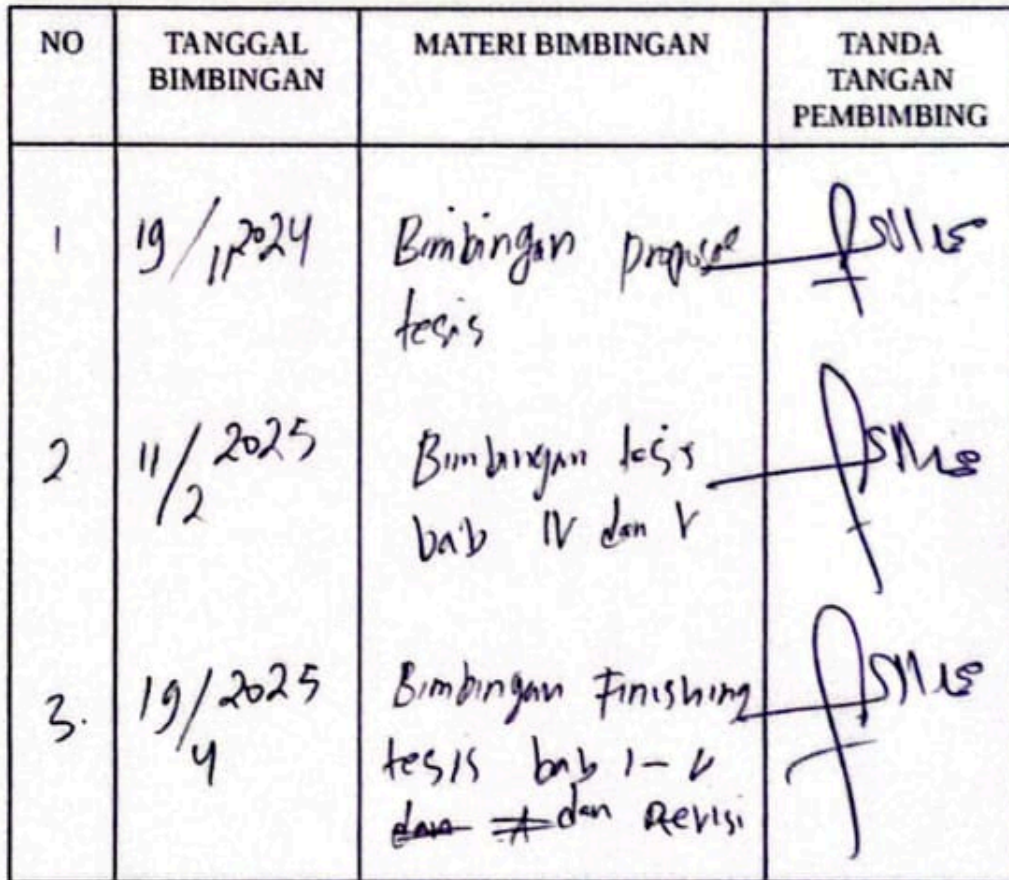 NO TANGGAL BIMBINGAN MATERI BIMBINGAN TANDA TANGAN PEMBIMBING
1 19/11 2024 Bimbingan proposal
tesis
2 11/2 2025 Bimbingan tesis
bab IV dan V
3. 19/4 2025 Bimbingan Finishing
tesis bab I - V
dan Revisi